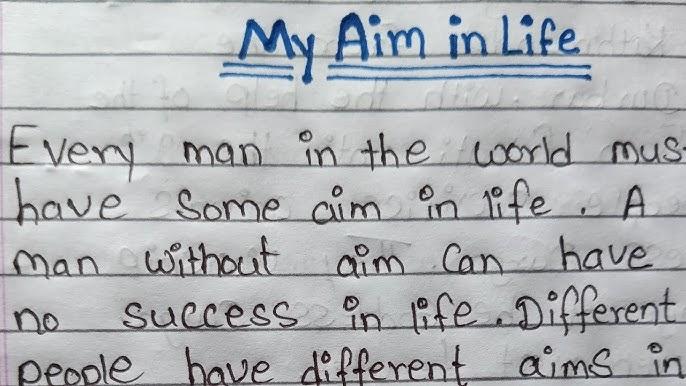 My Aim in Life
Every man in the world mus
have some aim in life. A
man without aim can have
no success in life. Different
people have different aims in